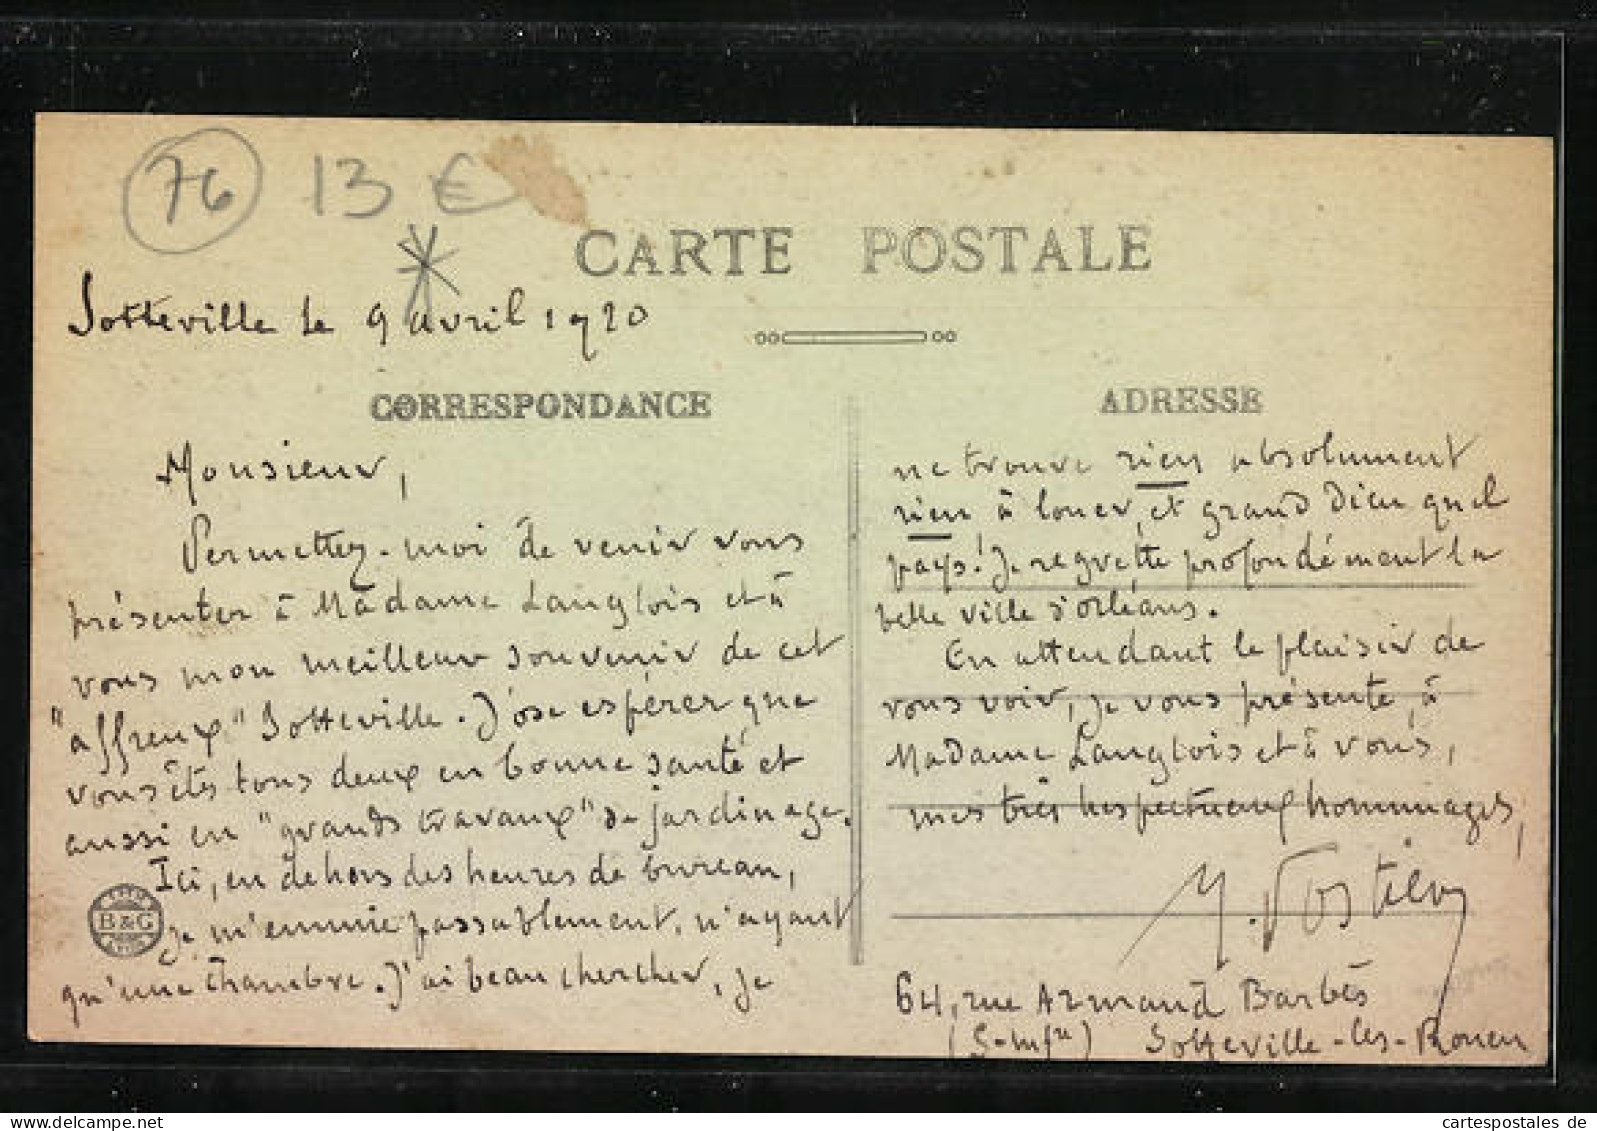 76 13 €
CARTE POSTALE
Sotteville le 9 avril 1920
CORRESPONDANCE
Monsieur,
Permettez-moi de venir vous
présenter à Madame Langlois et à
vous mon meilleur souvenir de cet
"affreux" Sotteville. J'ose espérer que
vous êtes tous deux en bonne santé et
aussi en "grands travaux" de jardinage.
Ici, en dehors des heures de bureau,
je m'ennuie passablement, n'ayant
qu'une chambre. J'ai beau chercher, je
B&G
ADRESSE
ne trouve rien absolument
rien à louer, et grand Dieu quel
pays! Je regrette profondément la
belle ville d'Orléans.
En attendant le plaisir de
vous voir, je vous présente, à
Madame Langlois et à vous,
mes très respectueux hommages,
64, rue Armand Barbès
(S-Infre) Sotteville-les-Rouen
cartespostales de